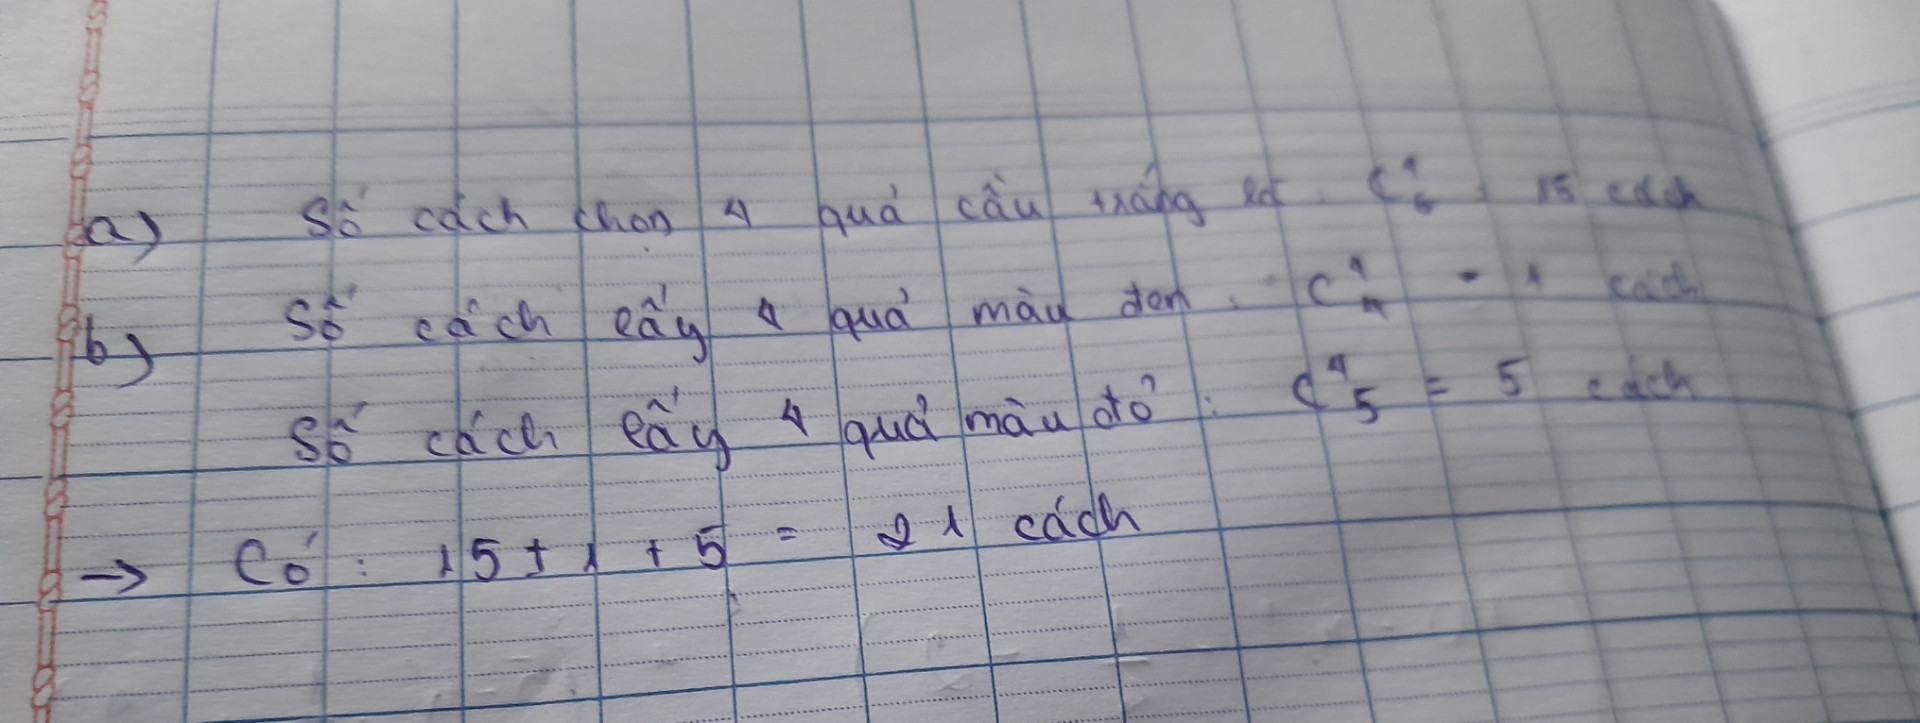 a) Số cách chọn 4 quả cầu trắng là: C⁴₆ = 15 cách
b) Số cách lấy 4 quả màu đen: C⁴₄ = 1 cách
Số cách lấy 4 quả màu đỏ: C⁴₅ = 5 cách
→ Có: 15 + 1 + 5 = 21 cách